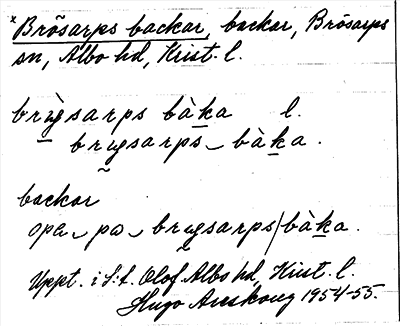 *Brösarps backar, backar, Brösarps
sn, Albo hd, Krist. l.
brùgsarps bàka l.
brugsarps bàka.
backar
opa pa brugsarps/bàka.
Uppt. i S:t. Olof Albo hd, Krist. l.
Hugo Areskoug 1954-55.